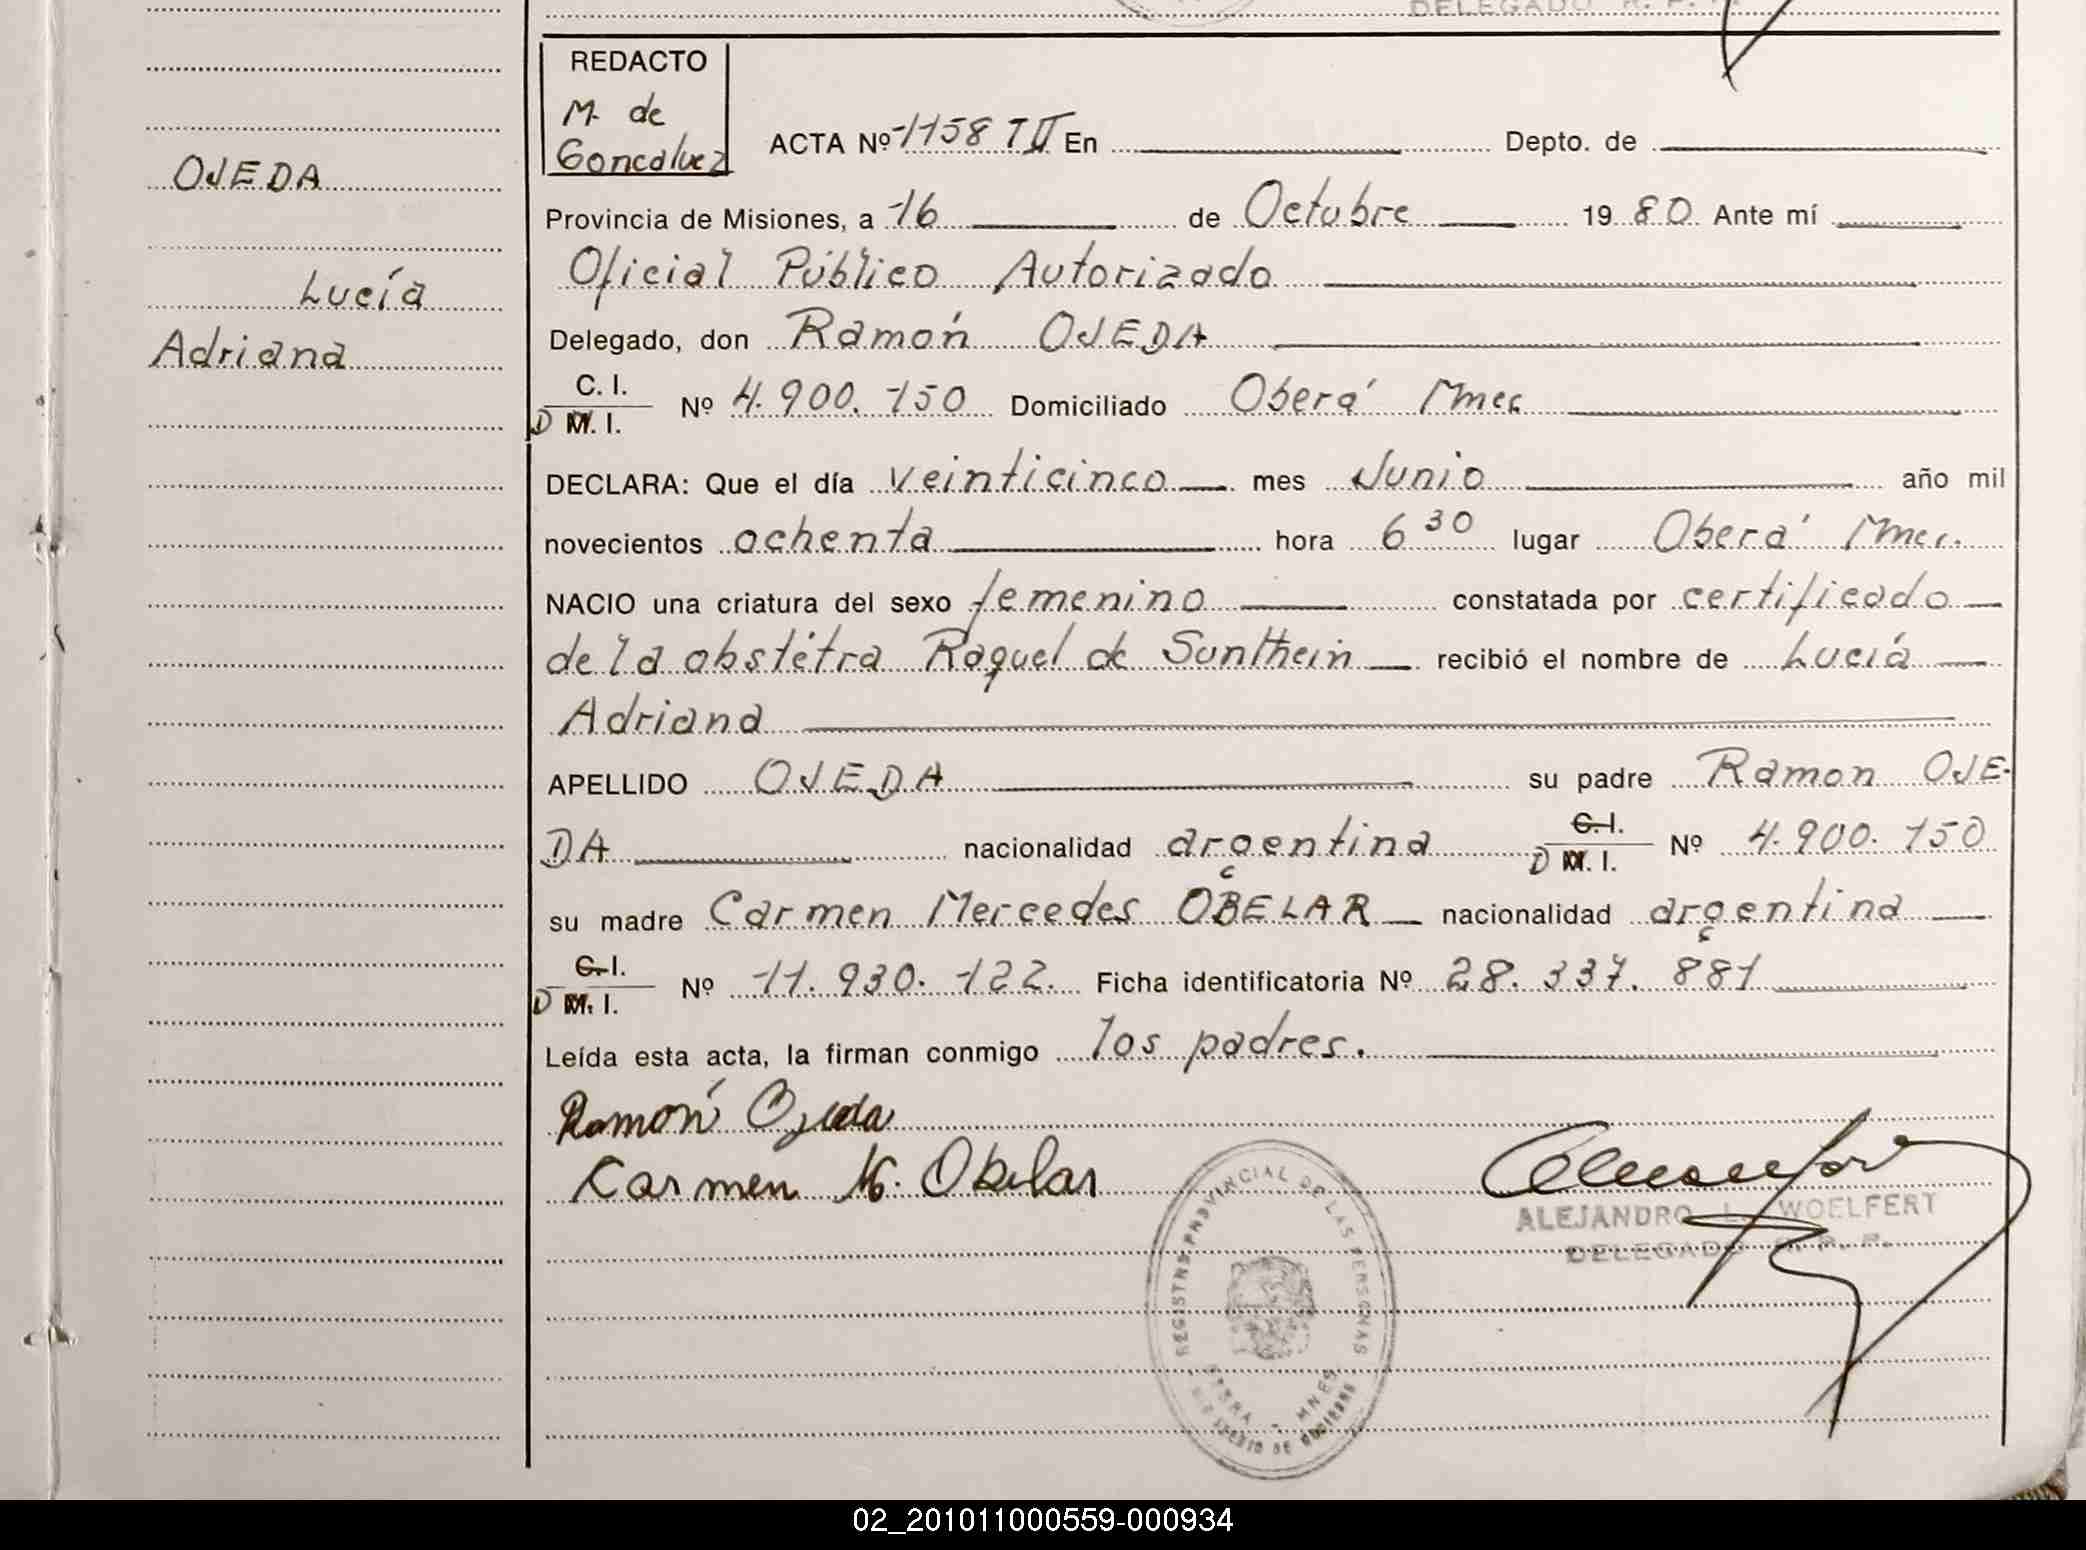 DELEGADO R. P. P.
REDACTO
M. de
Goncalvez
ACTA Nº 1158 T II En Depto. de
OJEDA
Provincia de Misiones, a 16 de Octubre 19 80 Ante mí
Oficial Público Autorizado
Lucía
Delegado, don Ramón OJEDA
Adriana
C. I.
D M. I. Nº 4.900.150 Domiciliado Oberá Mnes
DECLARA: Que el día veinticinco mes Junio año mil
novecientos ochenta hora 6 30 lugar Oberá Mnes.
NACIO una criatura del sexo femenino constatada por certificado
de la obstétra Raquel de Sunthein recibió el nombre de Lucía
Adriana
APELLIDO OJEDA su padre Ramon OJE-
DA nacionalidad argentina C. I. D M. I. Nº 4.900.150
su madre Carmen Mercedes OBELAR nacionalidad argentina
C. I. D M. I. Nº 11.930.122. Ficha identificatoria Nº 28.337.881
Leída esta acta, la firman conmigo los padres.
Ramón Ojeda
Carmen M. Obelar
ALEJANDRO L. WOELFERT
DELEGADO R. P. P.
REGISTRO PROVINCIAL DE LAS PERSONAS
OBERA - MNES
MINISTERIO DE GOBIERNO
02_201011000559-000934